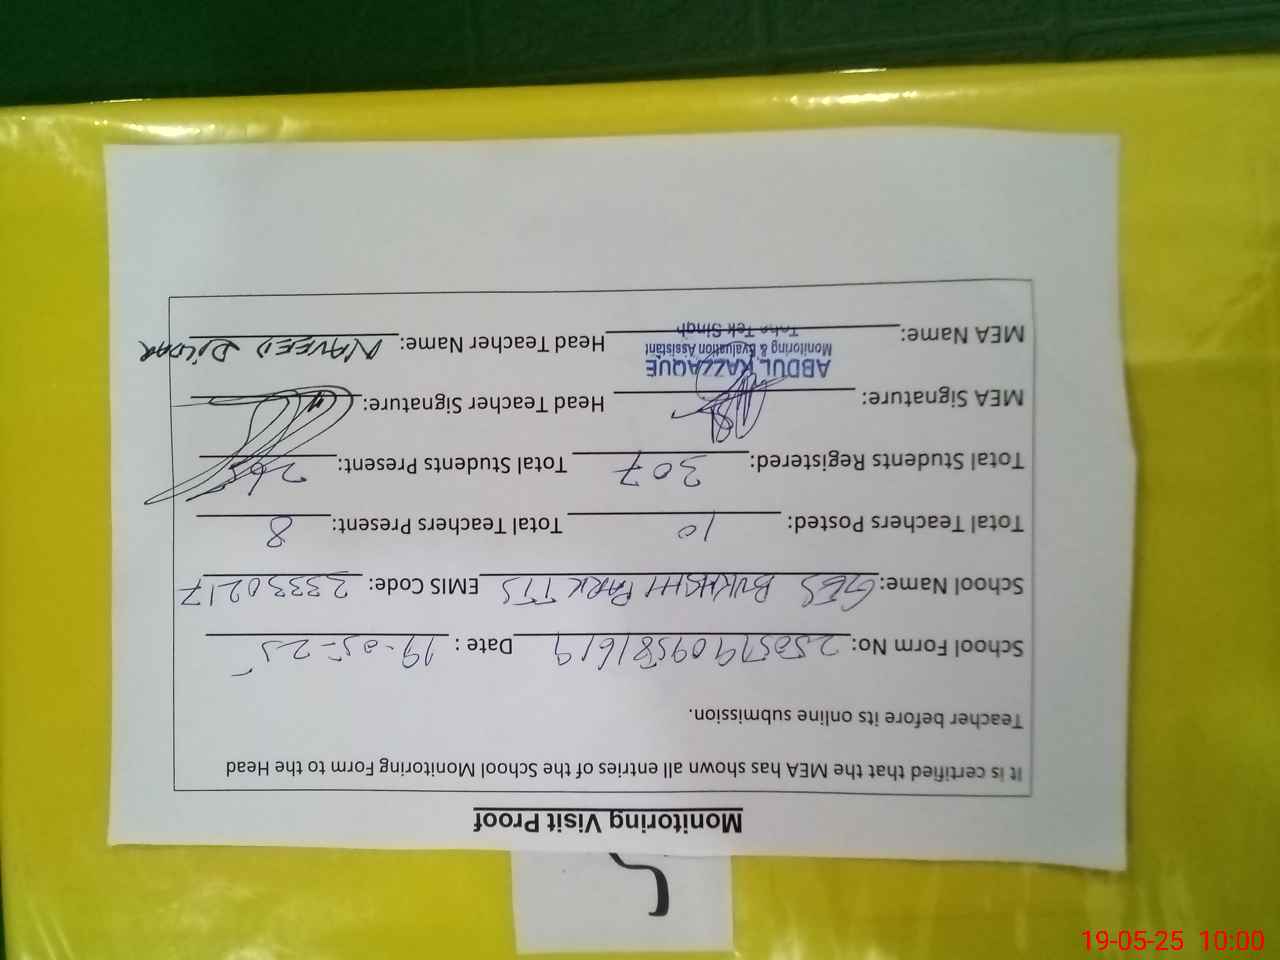 Monitoring Visit Proof
It is certified that the MEA has shown all entries of the School Monitoring Form to the Head
Teacher before its online submission.
School Form No: 25051909581619 Date : 19-05-25
School Name: GES BUKHSHI PARK TTS EMIS Code: 33330217
Total Teachers Posted: 10 Total Teachers Present: 8
Total Students Registered: 307 Total Students Present: 265
MEA Signature: Head Teacher Signature:
ABDUL RAZZAQUE
Monitoring & Evaluation Assistant
Toba Tek Singh
MEA Name: Head Teacher Name: NAVEED DILDAR
19-05-25 10:00